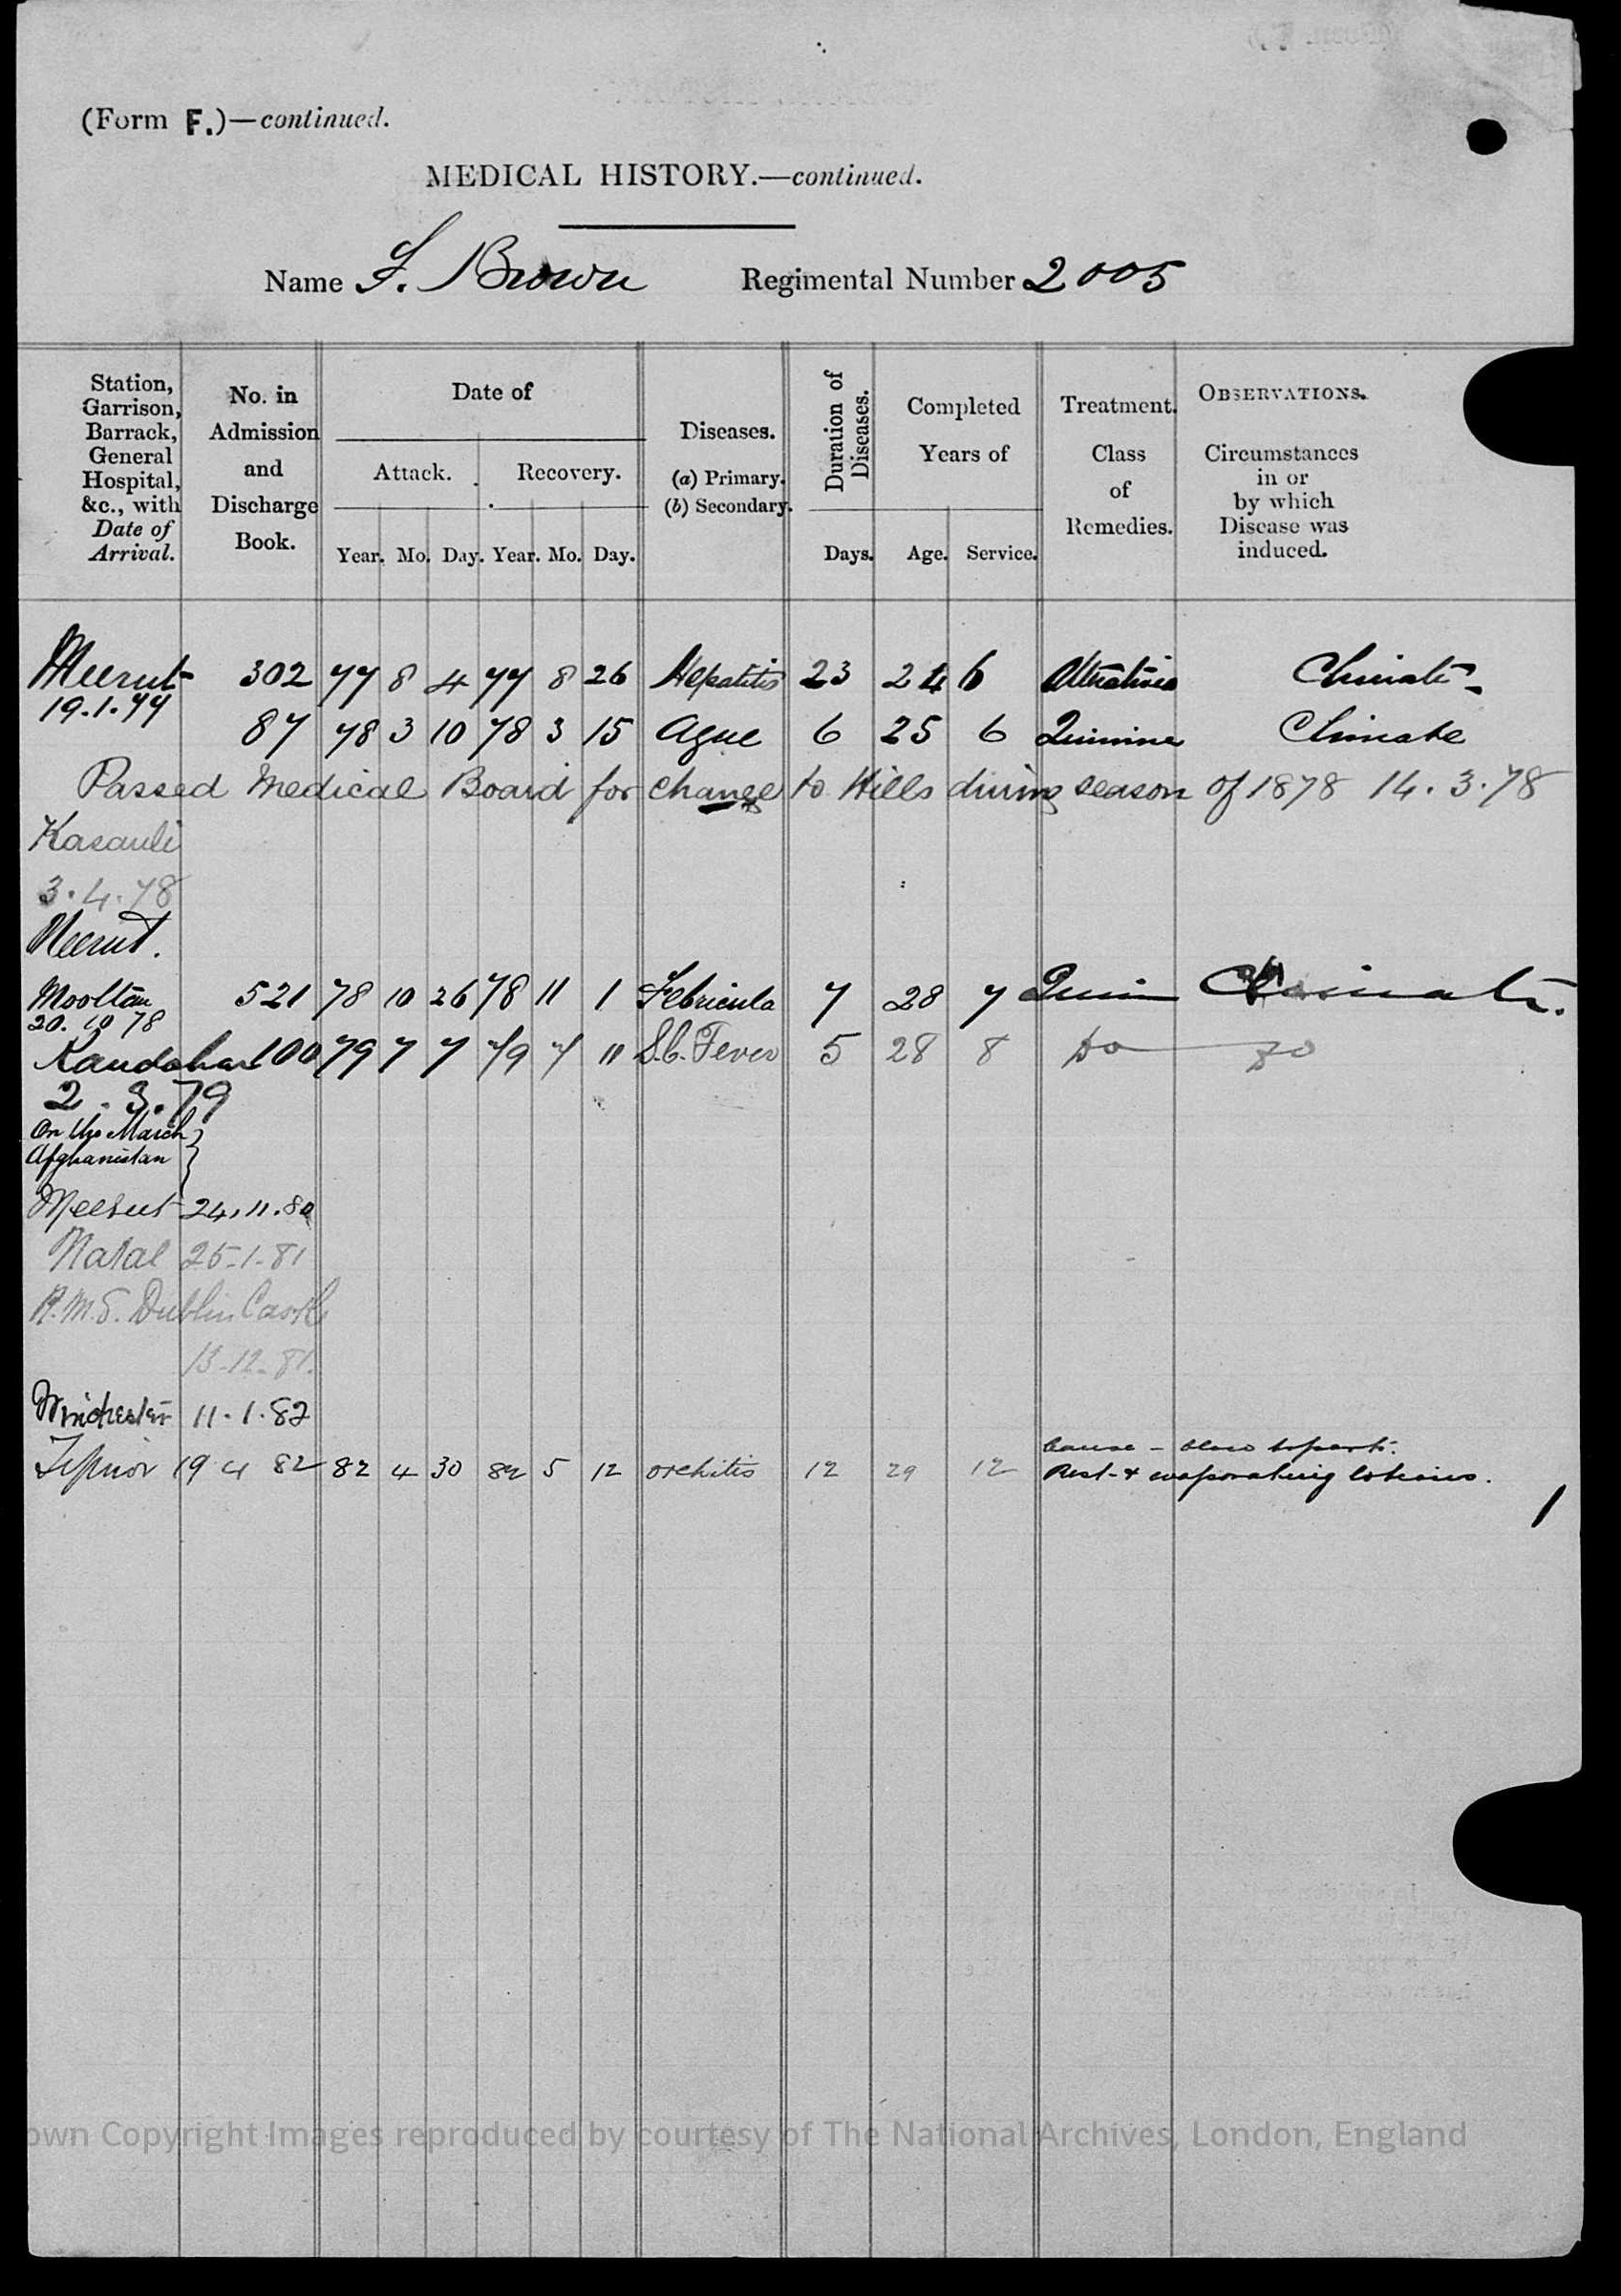 (Form F.)—continued.
MEDICAL HISTORY.—continued.
Name F. Brown Regimental Number 2005
Station, Garrison, Barrack, General Hospital, &c., with Date of Arrival.
No. in Admission and Discharge Book.
Date of
Attack. Recovery.
Year. Mo. Day. Year. Mo. Day.
Diseases.
(a) Primary.
(b) Secondary.
Duration of Diseases.
Days.
Completed Years of
Age. Service.
Treatment.
Class of Remedies.
OBSERVATIONS.
Circumstances in or by which Disease was induced.
Meerut 302 77 8 4 77 8 26 Hepatitis 23 24 6 Alteratives Climate
19.1.77
87 78 3 10 78 3 15 Ague 6 25 6 Quinine Climate
Passed Medical Board for change to Hills during season of 1878 14.3.78
Kasauli
3.4.78
Meerut.
Mooltan 521 78 10 26 78 11 1 Febricula 7 28 7 Quin Climate.
20.10 78
Kandahar 100 79 7 7 79 7 11 S.C. Fever 5 28 8 do do
2.3.79
On the March }
Afghanistan
Meerut 24.11.80
Natal 25-1-81
R.M.S. Dublin Castle
13-12-81.
Winchester 11.1.82
19 4 82 82 4 30 82 5 12 orchitis 12 29 12 Cause - blow to part.
Rest & evaporating lotions.
own Copyright Images reproduced by courtesy of The National Archives, London, England